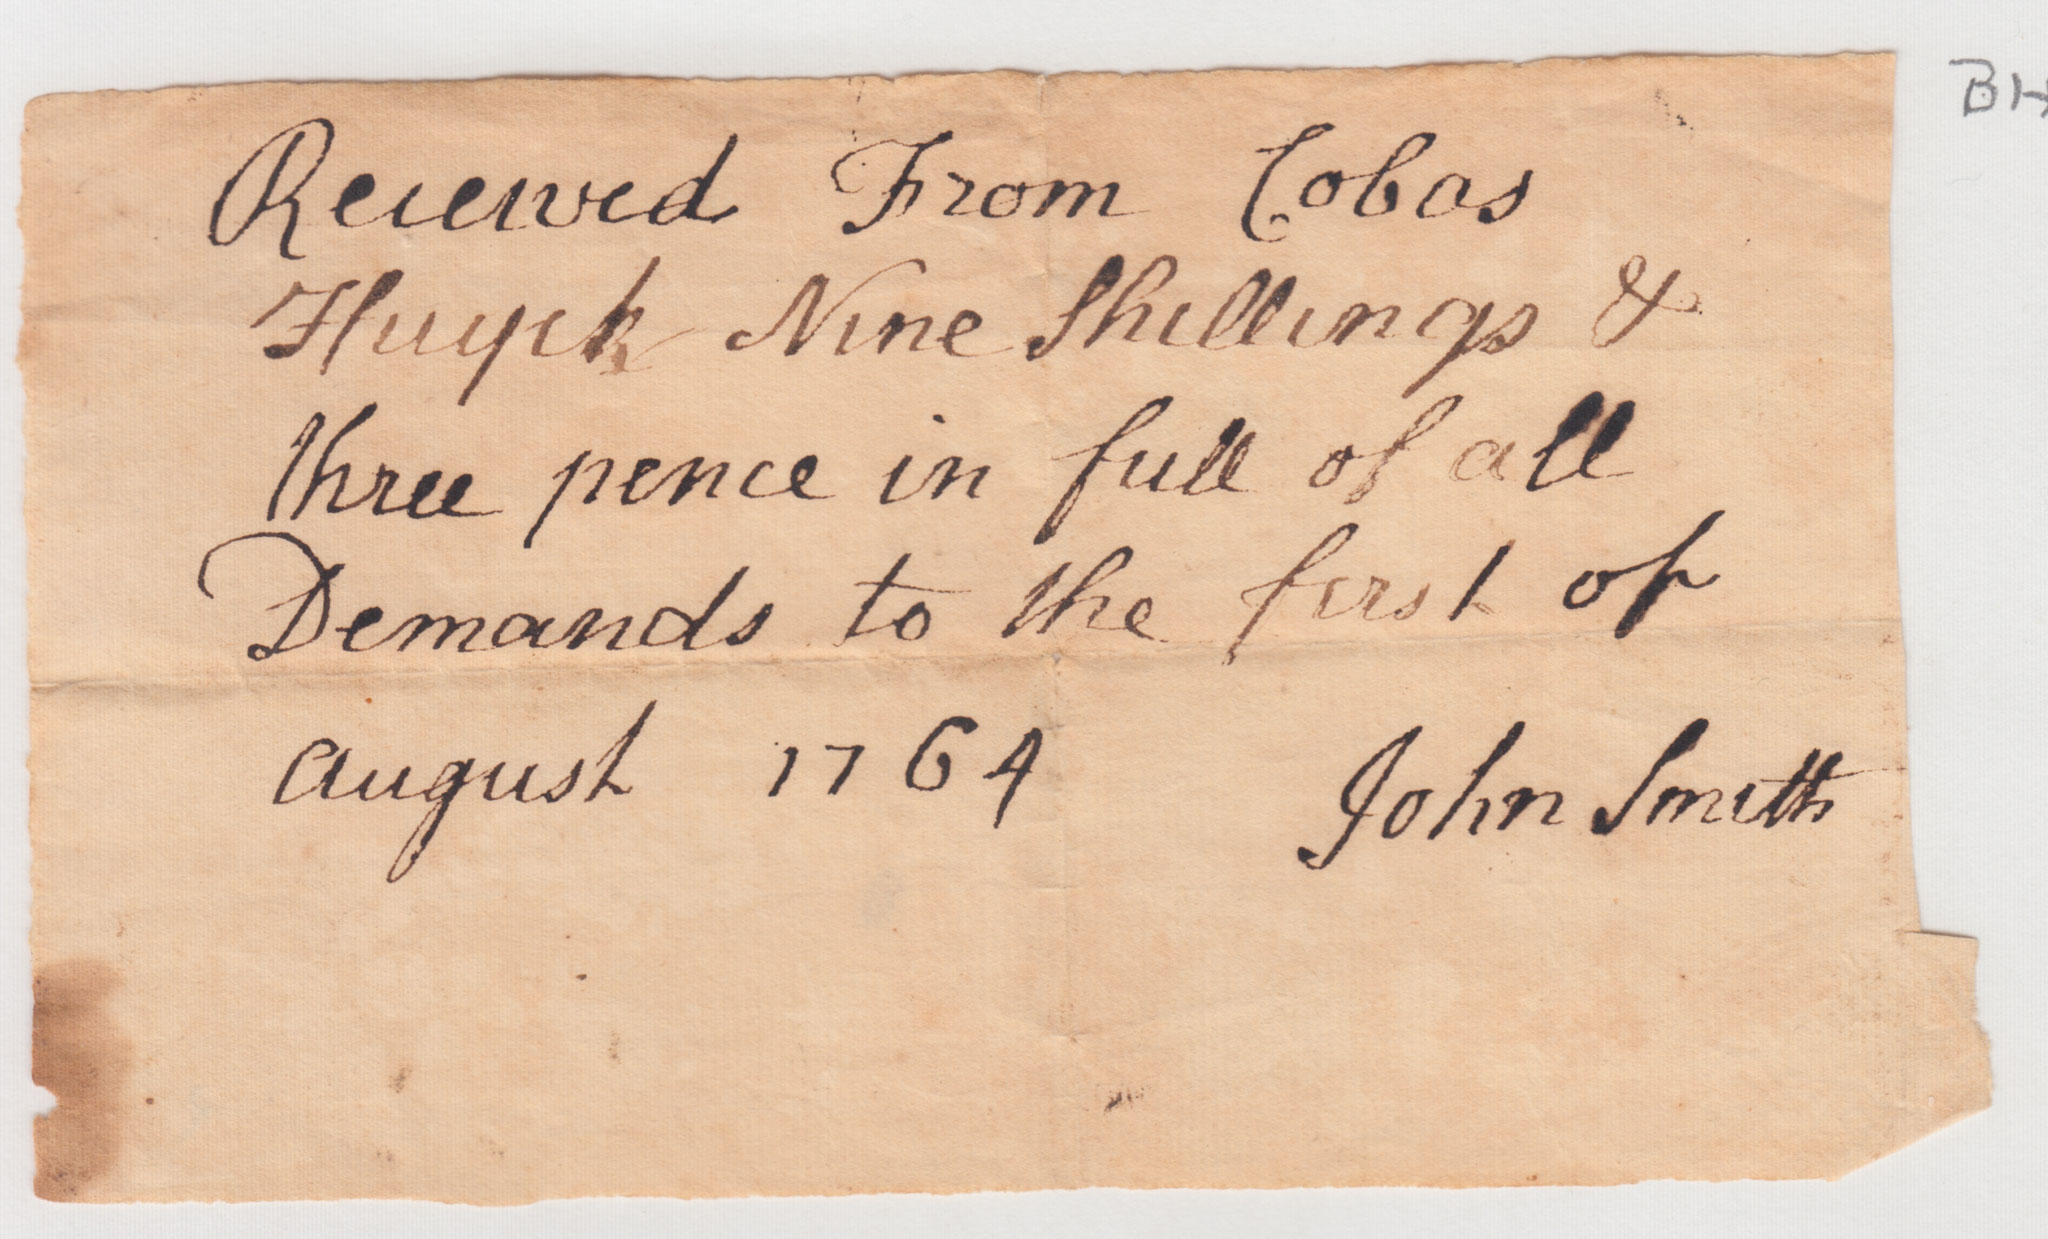 Receiewed From Cobas
Huyck Nine Shillings &
three pence in full of all
Demands to the first of
august 1764 John Smith